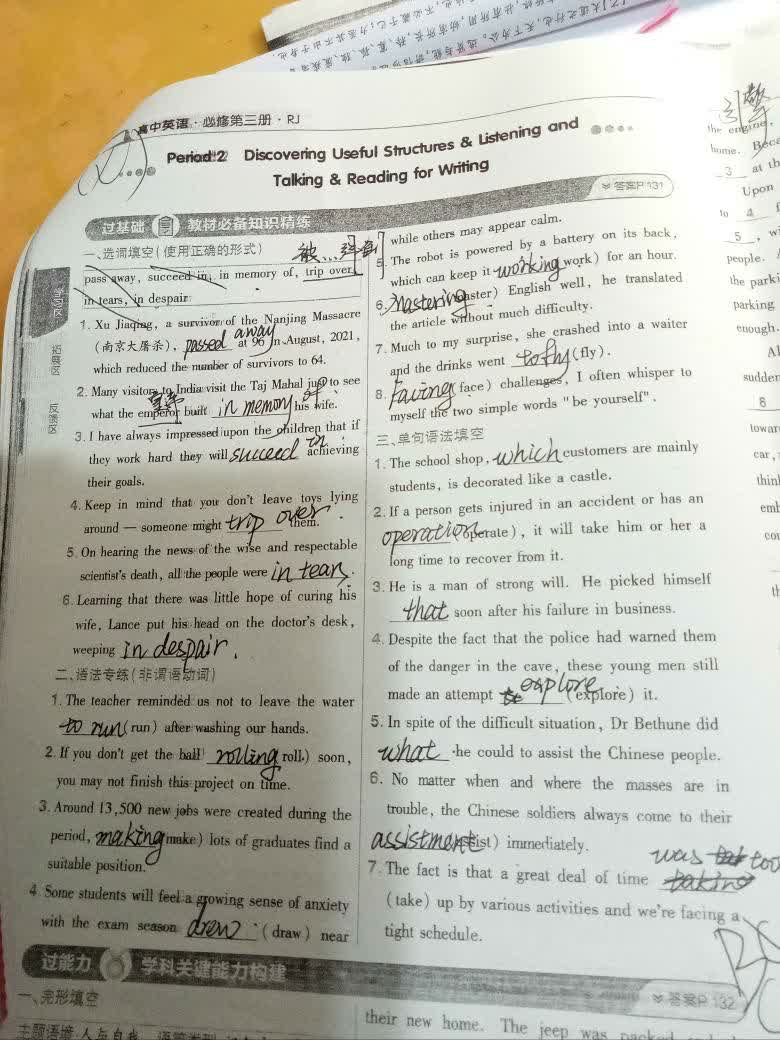 高中英语·必修第三册·RJ
Period 2 Discovering Useful Structures & Listening and
Talking & Reading for Writing
答案P.131
过基础 教材必备知识精练
学习区
拓展区
反馈区
一、选词填空(使用正确的形式)
pass away, succeed in, in memory of, trip over,
in tears, in despair
1. Xu Jiaqing, a survivor of the Nanjing Massacre
(南京大屠杀), passed away at 96 in August, 2021,
which reduced the number of survivors to 64.
2. Many visitors to India visit the Taj Mahal just to see
what the emperor built in memory of his wife.
3. I have always impressed upon the children that if
they work hard they will succeed in achieving
their goals.
4. Keep in mind that you don't leave toys lying
around — someone might trip over them.
5. On hearing the news of the wise and respectable
scientist's death, all the people were in tears.
6. Learning that there was little hope of curing his
wife, Lance put his head on the doctor's desk,
weeping in despair.
二、语法专练(非谓语动词)
1. The teacher reminded us not to leave the water
to run (run) after washing our hands.
2. If you don't get the ball rolling roll) soon,
you may not finish this project on time.
3. Around 13,500 new jobs were created during the
period, making make) lots of graduates find a
suitable position.
4 Some students will feel a growing sense of anxiety
with the exam season drew (draw) near
while others may appear calm.
5. The robot is powered by a battery on its back,
which can keep it working work) for an hour.
6. Mastering aster) English well, he translated
the article without much difficulty.
7. Much to my surprise, she crashed into a waiter
and the drinks went to fly (fly).
8. Facing face) challenges, I often whisper to
myself the two simple words "be yourself".
三、单句语法填空
1. The school shop, which customers are mainly
students, is decorated like a castle.
2. If a person gets injured in an accident or has an
operation operate), it will take him or her a
long time to recover from it.
3. He is a man of strong will. He picked himself
that soon after his failure in business.
4. Despite the fact that the police had warned them
of the danger in the cave, these young men still
made an attempt explore (explore) it.
5. In spite of the difficult situation, Dr Bethune did
what he could to assist the Chinese people.
6. No matter when and where the masses are in
trouble, the Chinese soldiers always come to their
assistment sist) immediately.
was too
7. The fact is that a great deal of time taking
(take) up by various activities and we're facing a
tight schedule.
过能力 学科关键能力构建
答案P.132
一、完形填空
their new home. The jeep was packed
the engine,
home. Beca
3 at th
Upon
to 4
5, wi
people.
the parki
parking
enough.
sudden
8
towar
car,
think